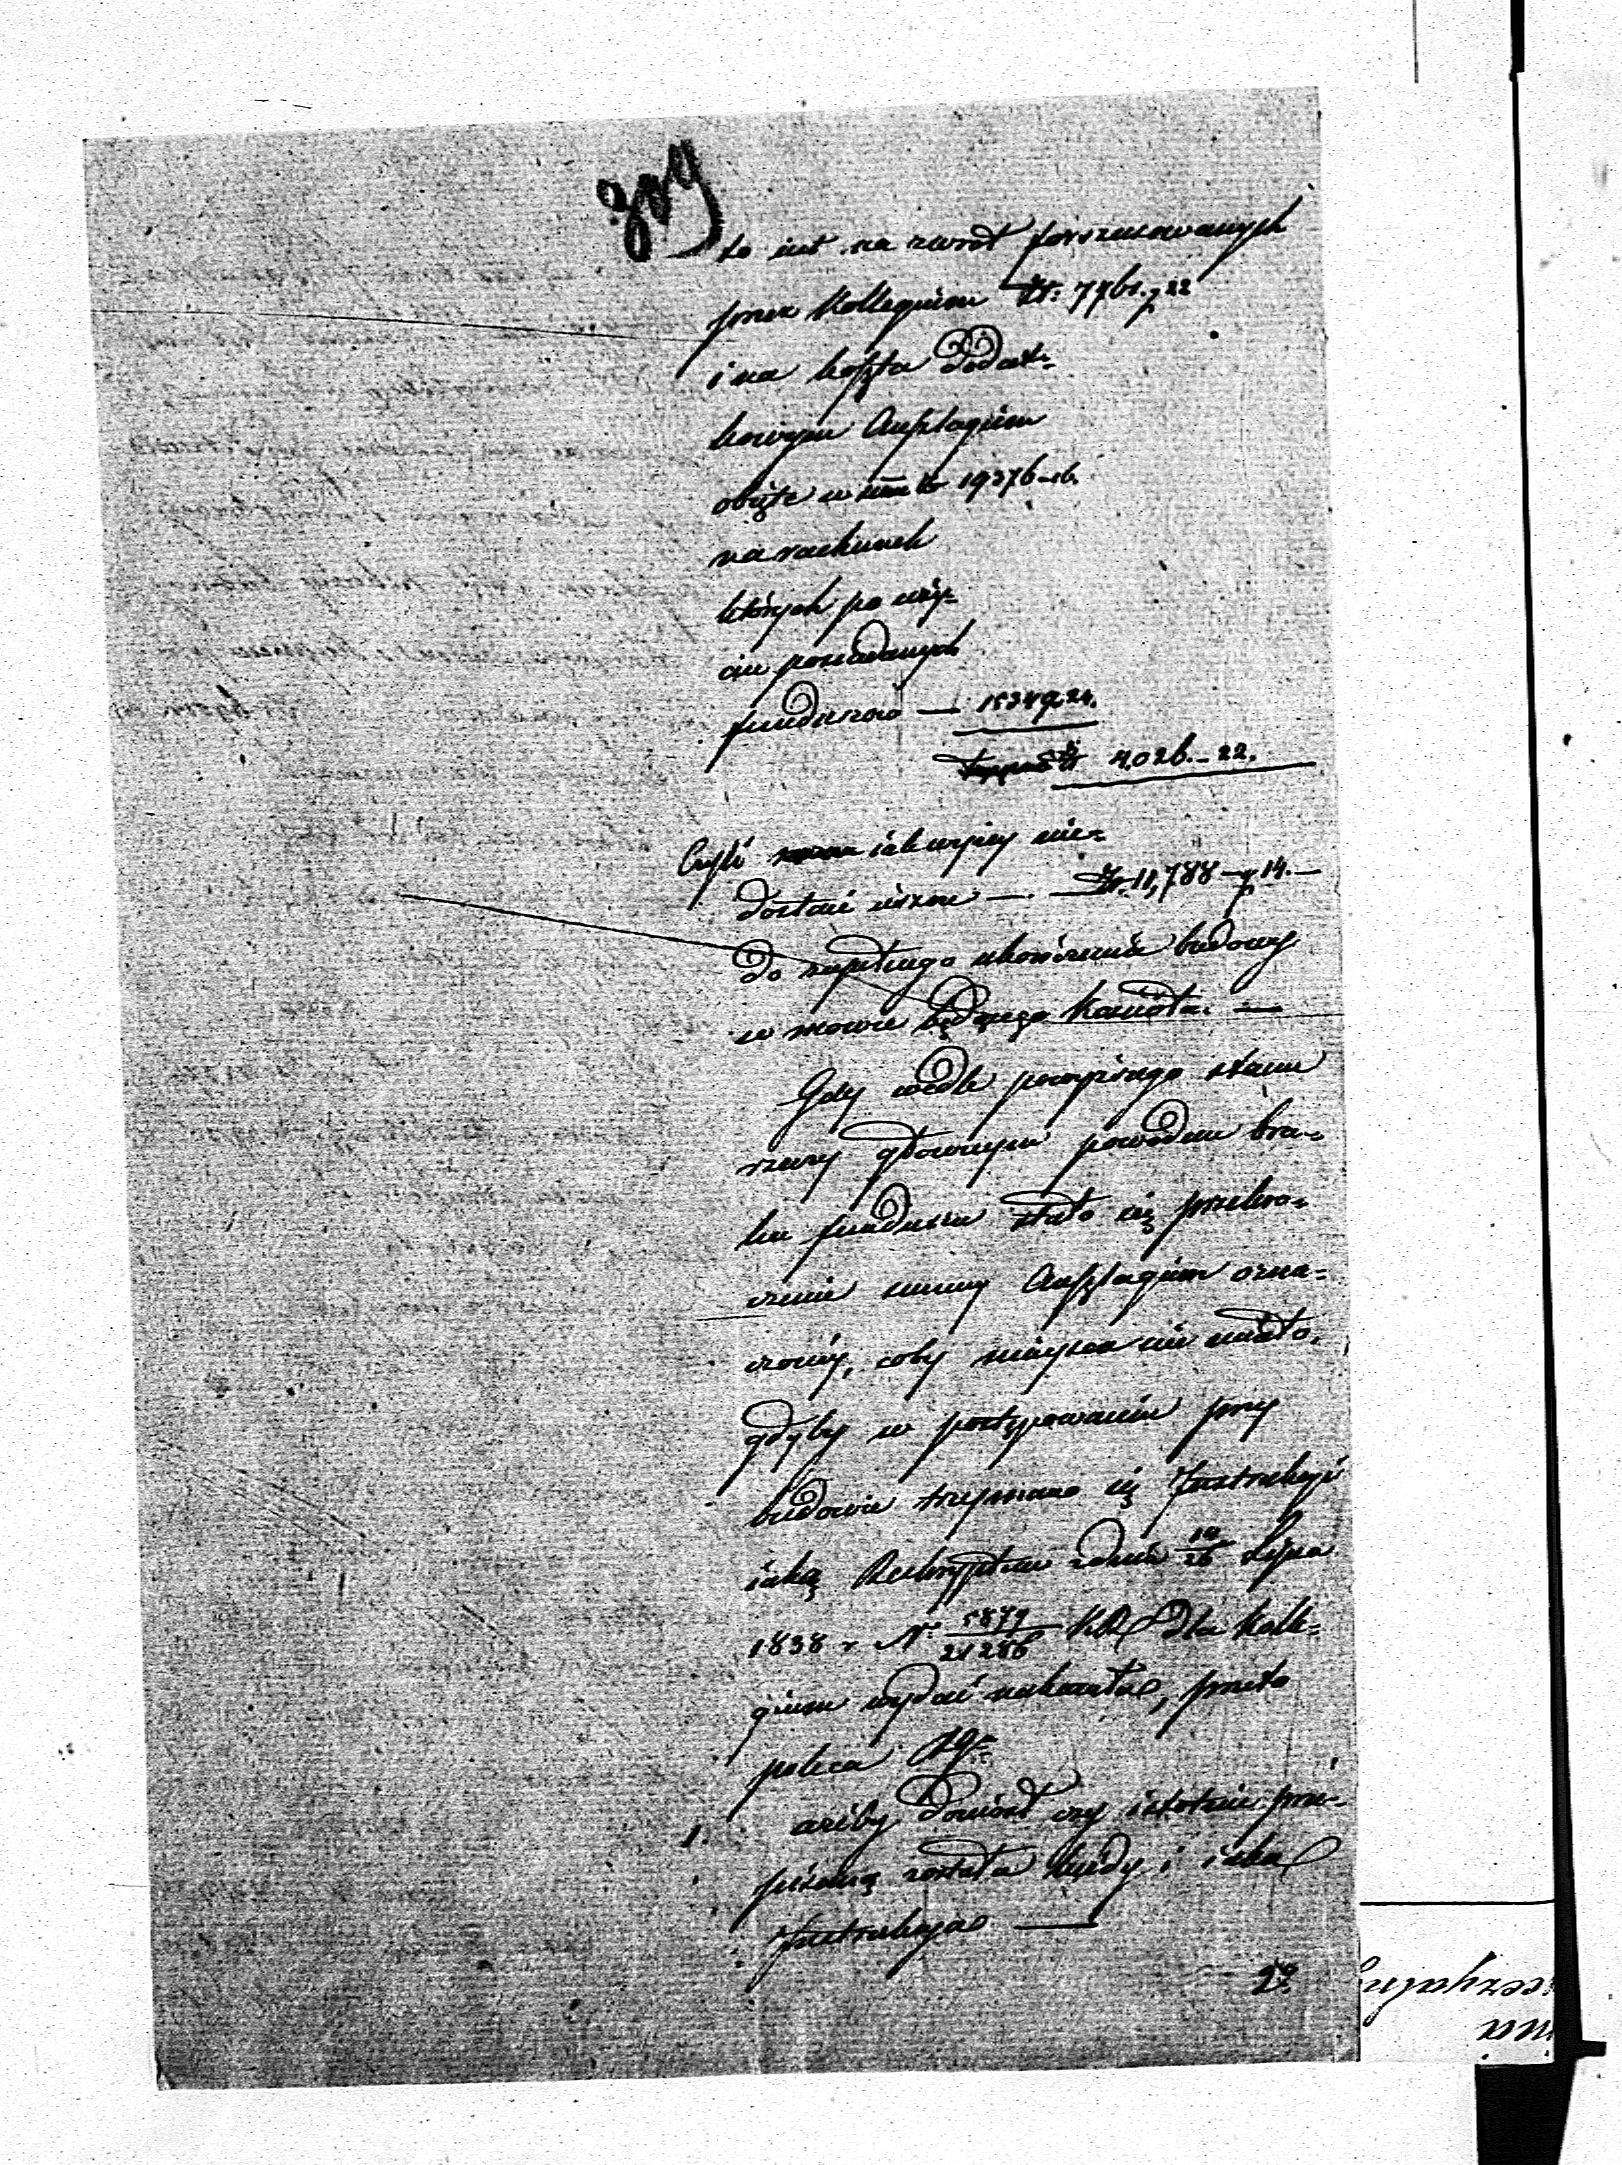 to iest na zwrot forszusowanych
przez Kollegium Zł: 7761.g 22
i na koszta dodat-
kowym Anszlagiem
obięte w 19376-16.
na rachunek
których po uży-
ciu posiadanych
funduszów — 15349.24.
Zł 4,026.-22.
Czyli iak wyżey nie-
dostaie ieszcze —. — Zł. 11,788 - g 14. —
Do zupełnego ukończenia budowy
w mowie będącego Kościoła. —
Gdy wedle powyższego stanu
rzeczy głównym powodem bra-
ku funduszu stało się przekro-
czenie summy Anszlagiem ozna-
czoney, coby mieysca nie miało,
gdyby w postępowaniu przy
budowie trzymano się Instrukcyi
iaką Reskryptem z dnia 14/26 Lipca
1838 r N: 5879/21286 dla Kolle-
gium wydać nakazała, przeto
poleca
1. ażeby doniósł czy istotnie prze-
pisaną została kiedy i iaka
Instrukcya —
2º